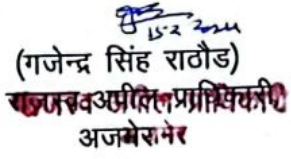 15-2-2024
(गजेन्द्र सिंह राठौड)
राजस्व अपील प्राधिकारी
अजमेर